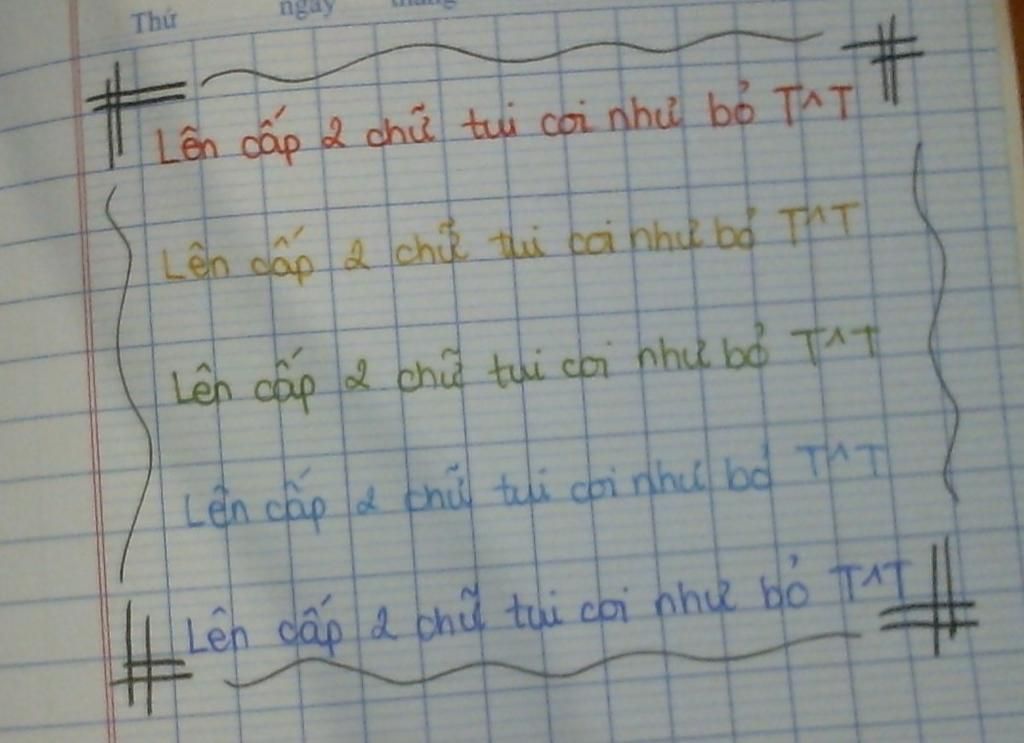 Thứ ngày tháng
Lên cấp 2 chữ tui coi như bỏ T^T
Lên cấp 2 chữ tui coi như bỏ T^T
Lên cấp 2 chữ tui coi như bỏ T^T
Lên cấp 2 chữ tui coi như bỏ T^T
Lên cấp 2 chữ tui coi như bỏ T^T